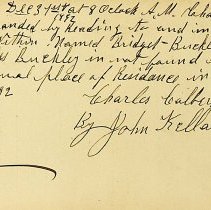 Dec 31st at 8 Oclock A.M.
1892
by Reading to and in
Within Named Bridget Buckley
Buckley is not found
usual place of Residence in
92
Charles
By John Kella